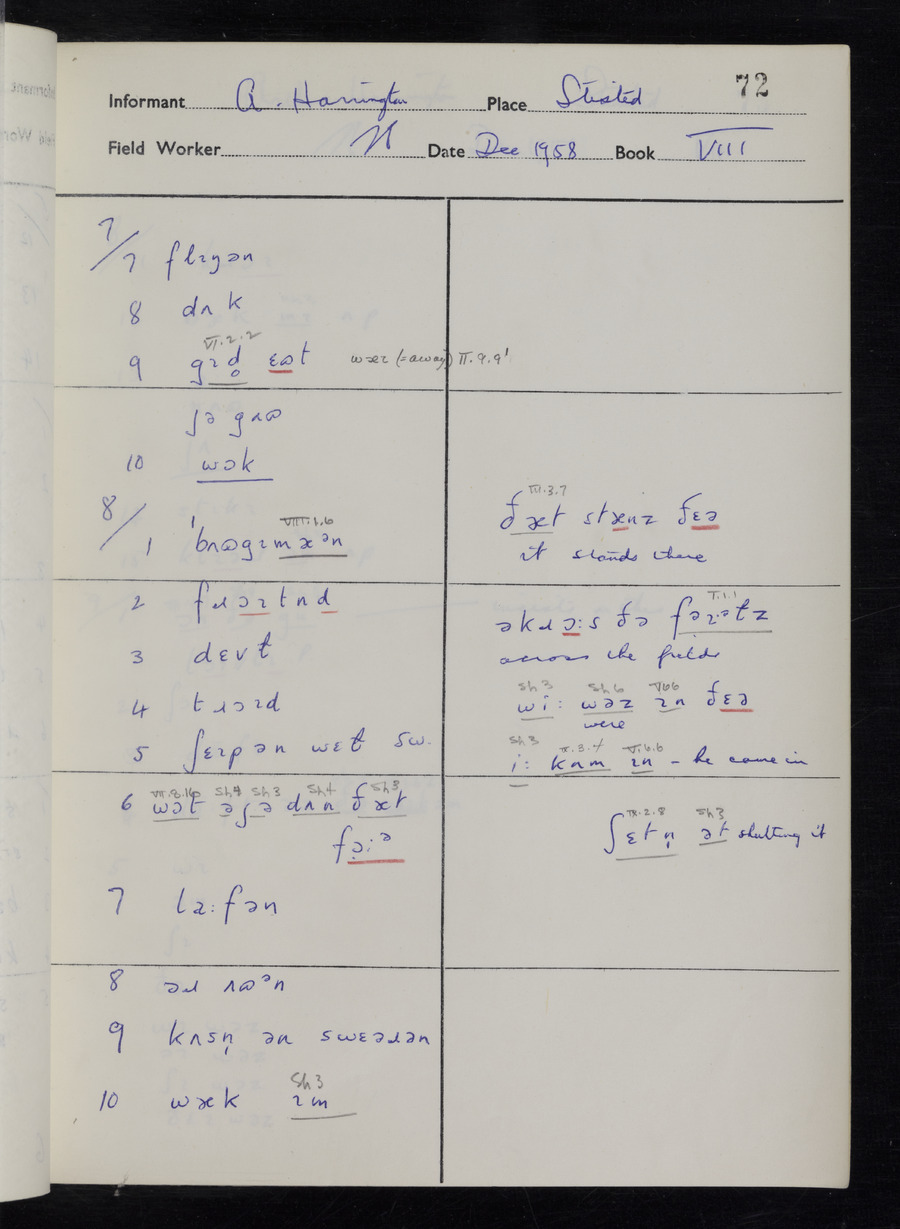 72
Informant A. Harrington Place Stisted
Field Worker Dec 1958 Book VIII
7/7 flɪŋən
8 dʌk
VI.2.2
9 gɪd̥ ɛɷt wæɪ (=away) II.9.9
ʃə gʌɷ
10 wɔk
VIII.1.6
8/1 ˈbʌɷgɪmæən
2 fɹɔɪtnd
3 dɛvɫ
4 tɹɔɪd
5 ʃɛɪpən wɛɫ sw.
VII.8.16 Sh4 Sh3 Sh4 Sh3
6 wɔt əʃə dʌn ðæt
fəːə
7 laːfən
8 əɹ ʌɷən
9 kʌsn̩ ən swɛəɹən
Sh3
10 wæk ɪm
III.3.7
ðæt stænz ðɛə
it stands there
I.1.1
əkɹɔːs ðə fəɪətz
across the fields
Sh3 Sh6 V66
wiː wəz ɪn ðɛə
were
Sh3 IX.3.4 V.6.6
iː kʌm ɪn – he came in
IX.2.8 Sh3
ʃɛtn̩ ət shutting it